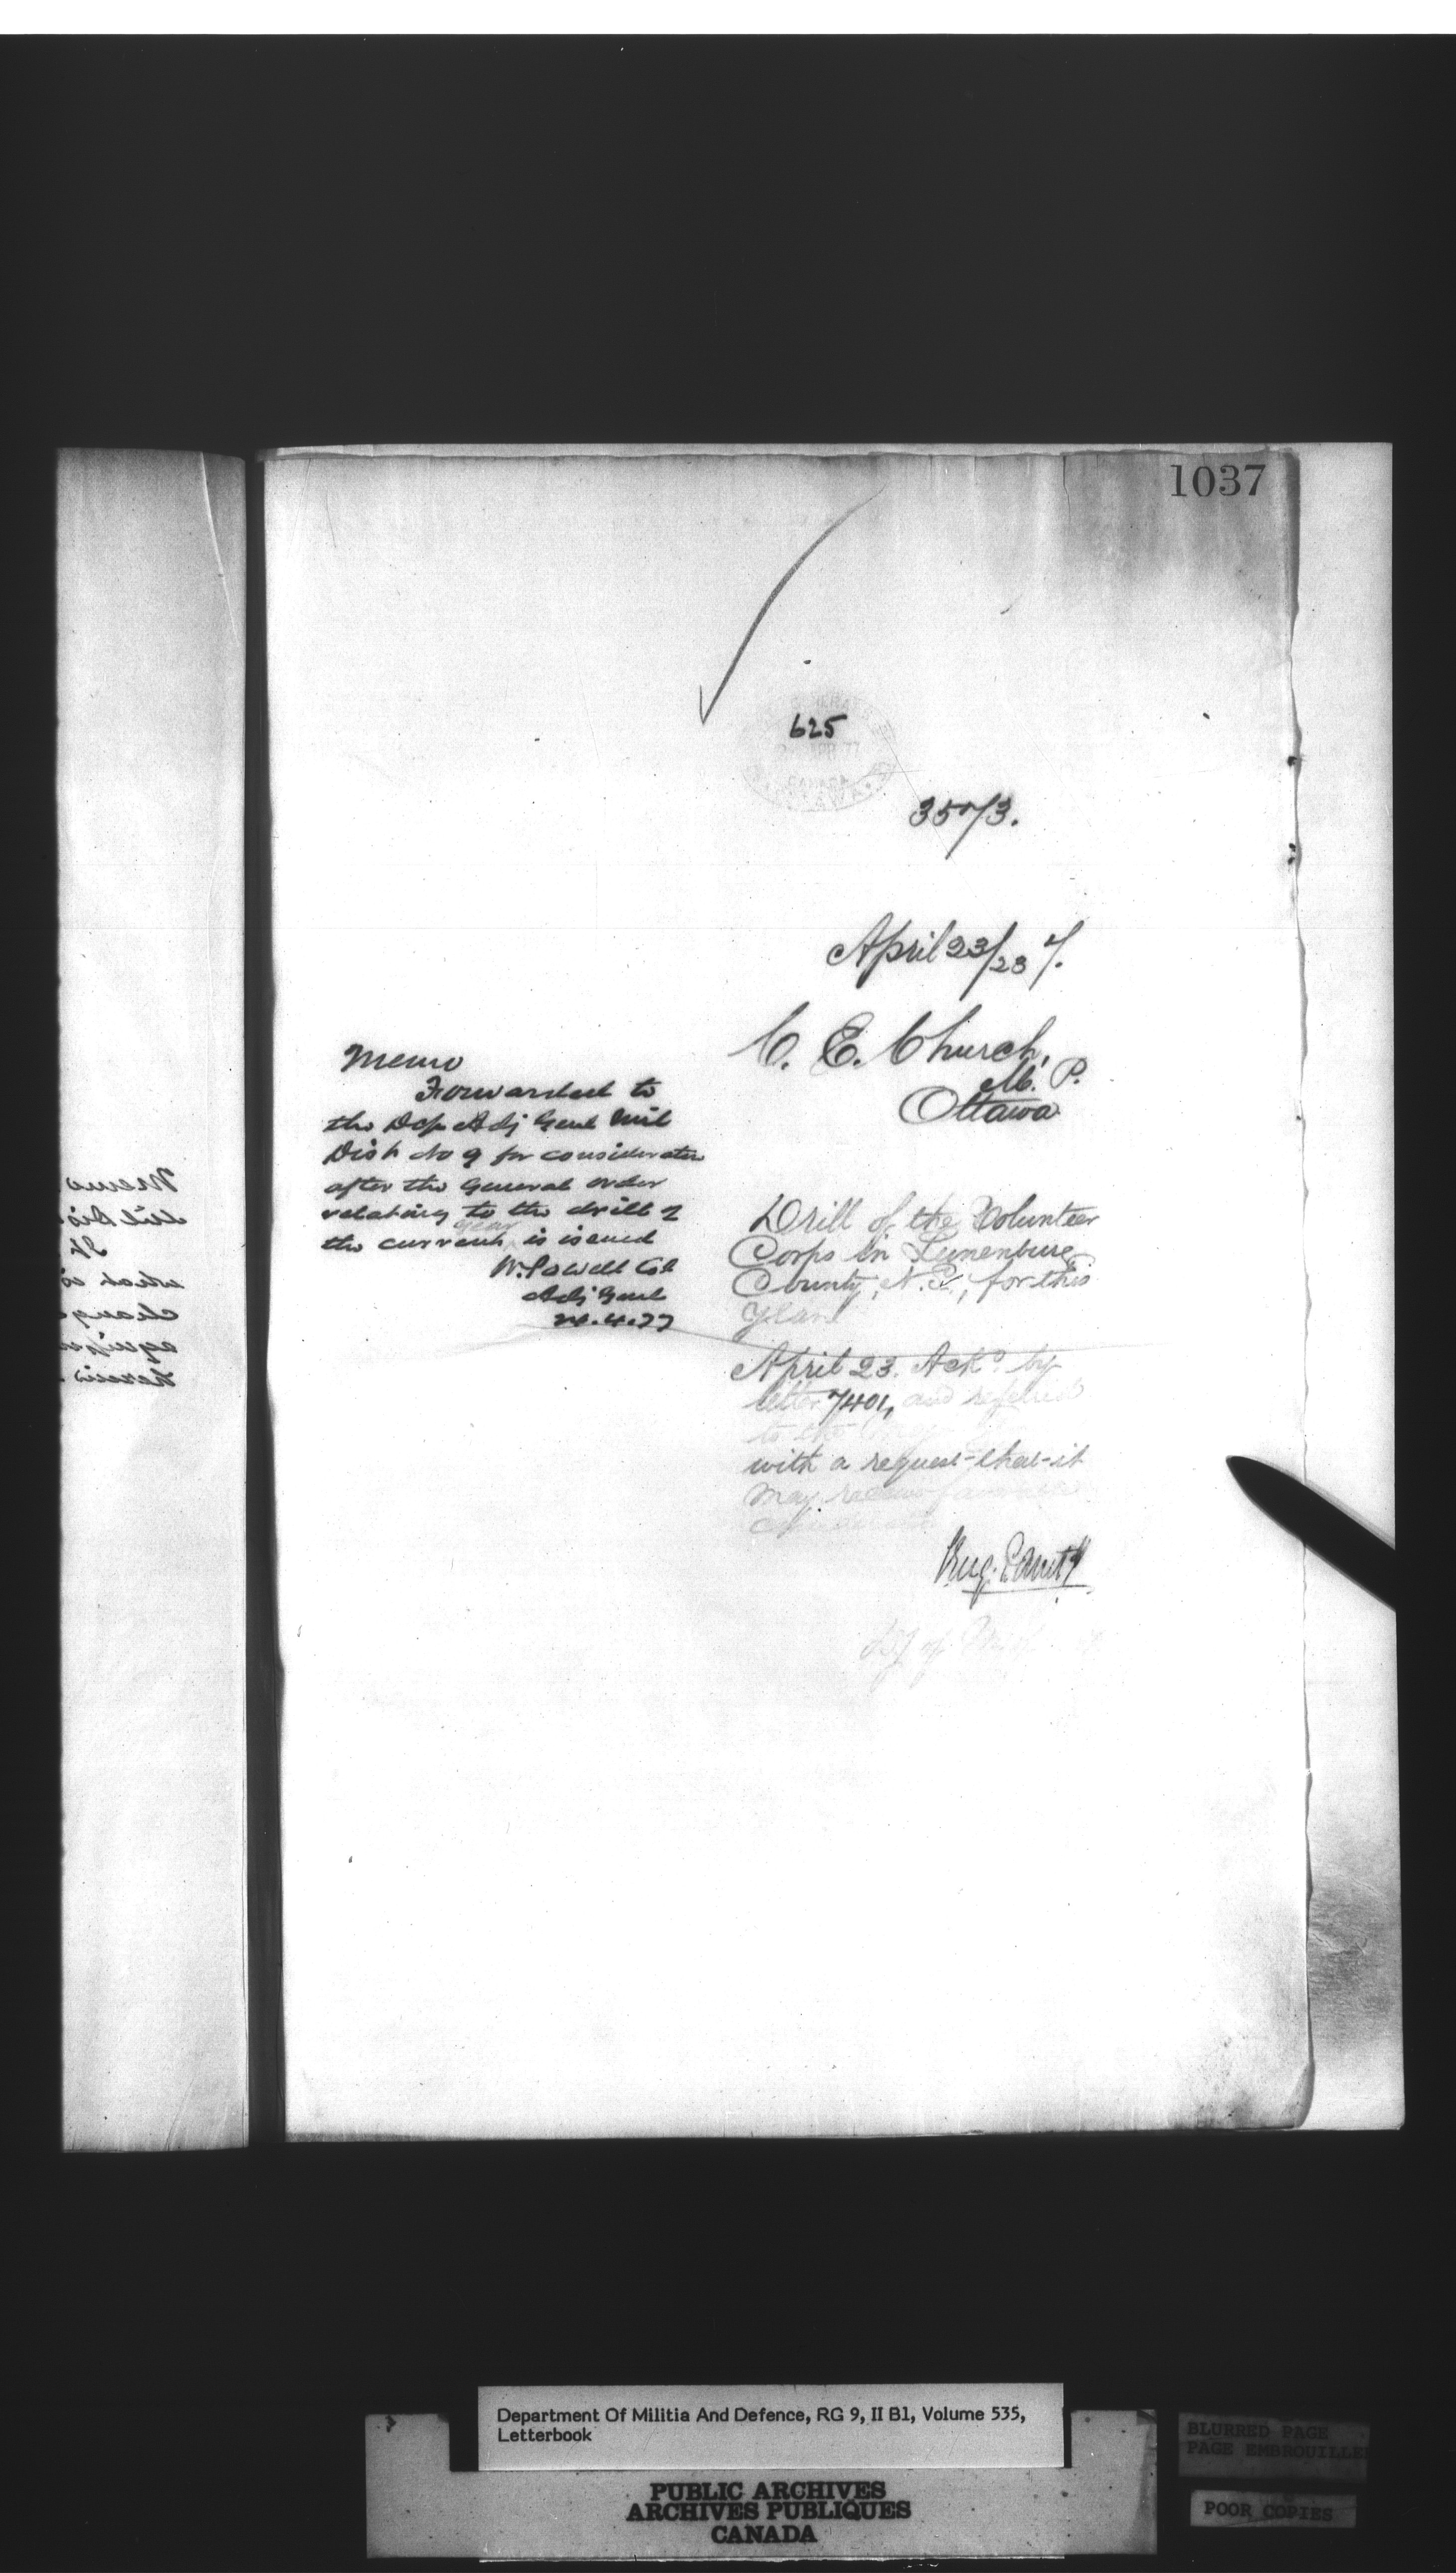 1037
625
APR 77
35073.
April 23/23 7.
C. E. Church,
M. P.
Ottawa
Memo
Forwarded to
the Dep Adj Genl Mil
Dist No 9 for consideration
after the General order
relating to the drill of
the current year is issued
W. Powell Col
Adj Genl
24.4.77
Drill of the Volunteer
Corps in Lunenburg
County, N.S., for this
year
April 23. Ackd. by
letter 7401, and referred
to the
with a request that it
may receive favorable
consideration
Department Of Militia And Defence, RG 9, II B1, Volume 535,
Letterbook
PUBLIC ARCHIVES
ARCHIVES PUBLIQUES
CANADA
BLURRED PAGE
PAGE EMBROUILLE
POOR COPIES